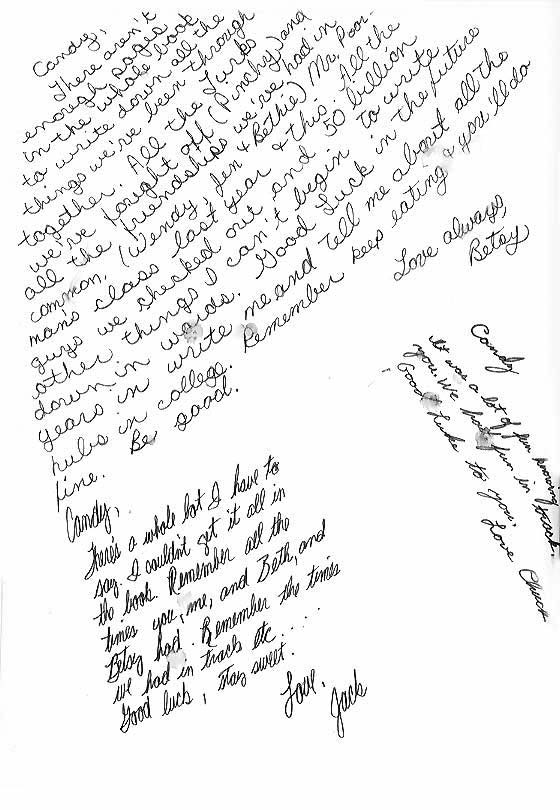 Candy,
There aren't
enough pages
in the whole book
to write down all the
things we've been through
together. All the Turks
we've fought off (Pinchy) and
all the friendships we've had in
common. (Wendy, Jen & Bethie) Mr. Poor-
man's class last year & this. All the
guys we checked out and 50 billion
other things I can't begin to write
down in words. Good Luck in the future
years in write me and tell me about all the
hubs in college. Remember keep eating & you'll do
fine. Be good.
Love always,
Betsy
Candy
It was a lot of fun knowing
you. We had fun in track.
Good Luke to you.
Love Chuck
Candy,
There's a whole lot I have to
say. I couldn't get it all in
the book. Remember all the
times you, me, and Beth, and
Betsy had. Remember the times
we had in track etc.....
Good luck, stay sweet.
Love,
Jack